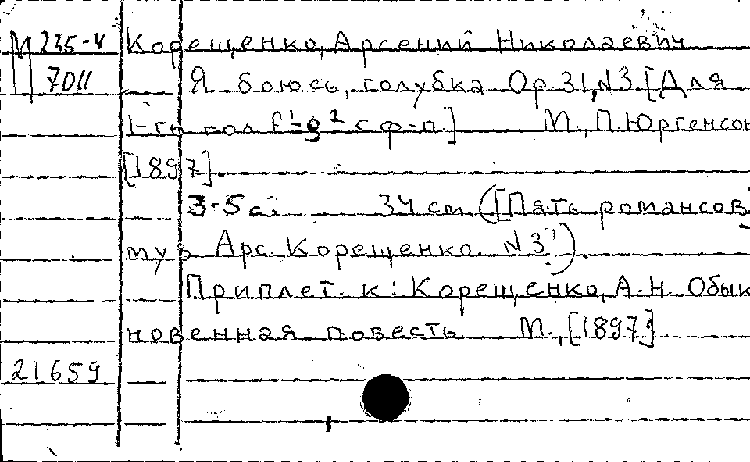 М 235-4 Корещенко, Арсений Николаевич
7011 Я боюсь, голубка Op. 31, N3. [Для
1-го гол. f¹-g² с ф-п.] М., П. Юргенсон
[1897].
3-5 с. 34 см. ([Пять романсов]
муз. Арс. Корещенко. N3).
Приплет. к: Корещенко, А. Н. Обык
новенная повесть М., [1897]
21659